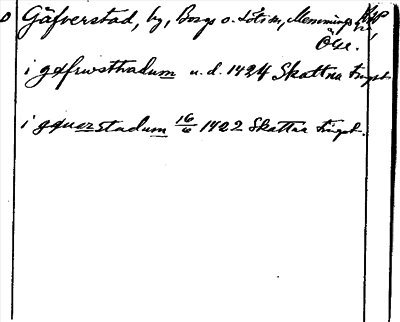 Gäfverstad, by, Borgs o. Löt sn, Memmings hd,
Öla.
i gæfrwsthadum u. d. 1424 Skattna Tingst.
i gæuerstadum 16/6 1422 Skattna Tingst.